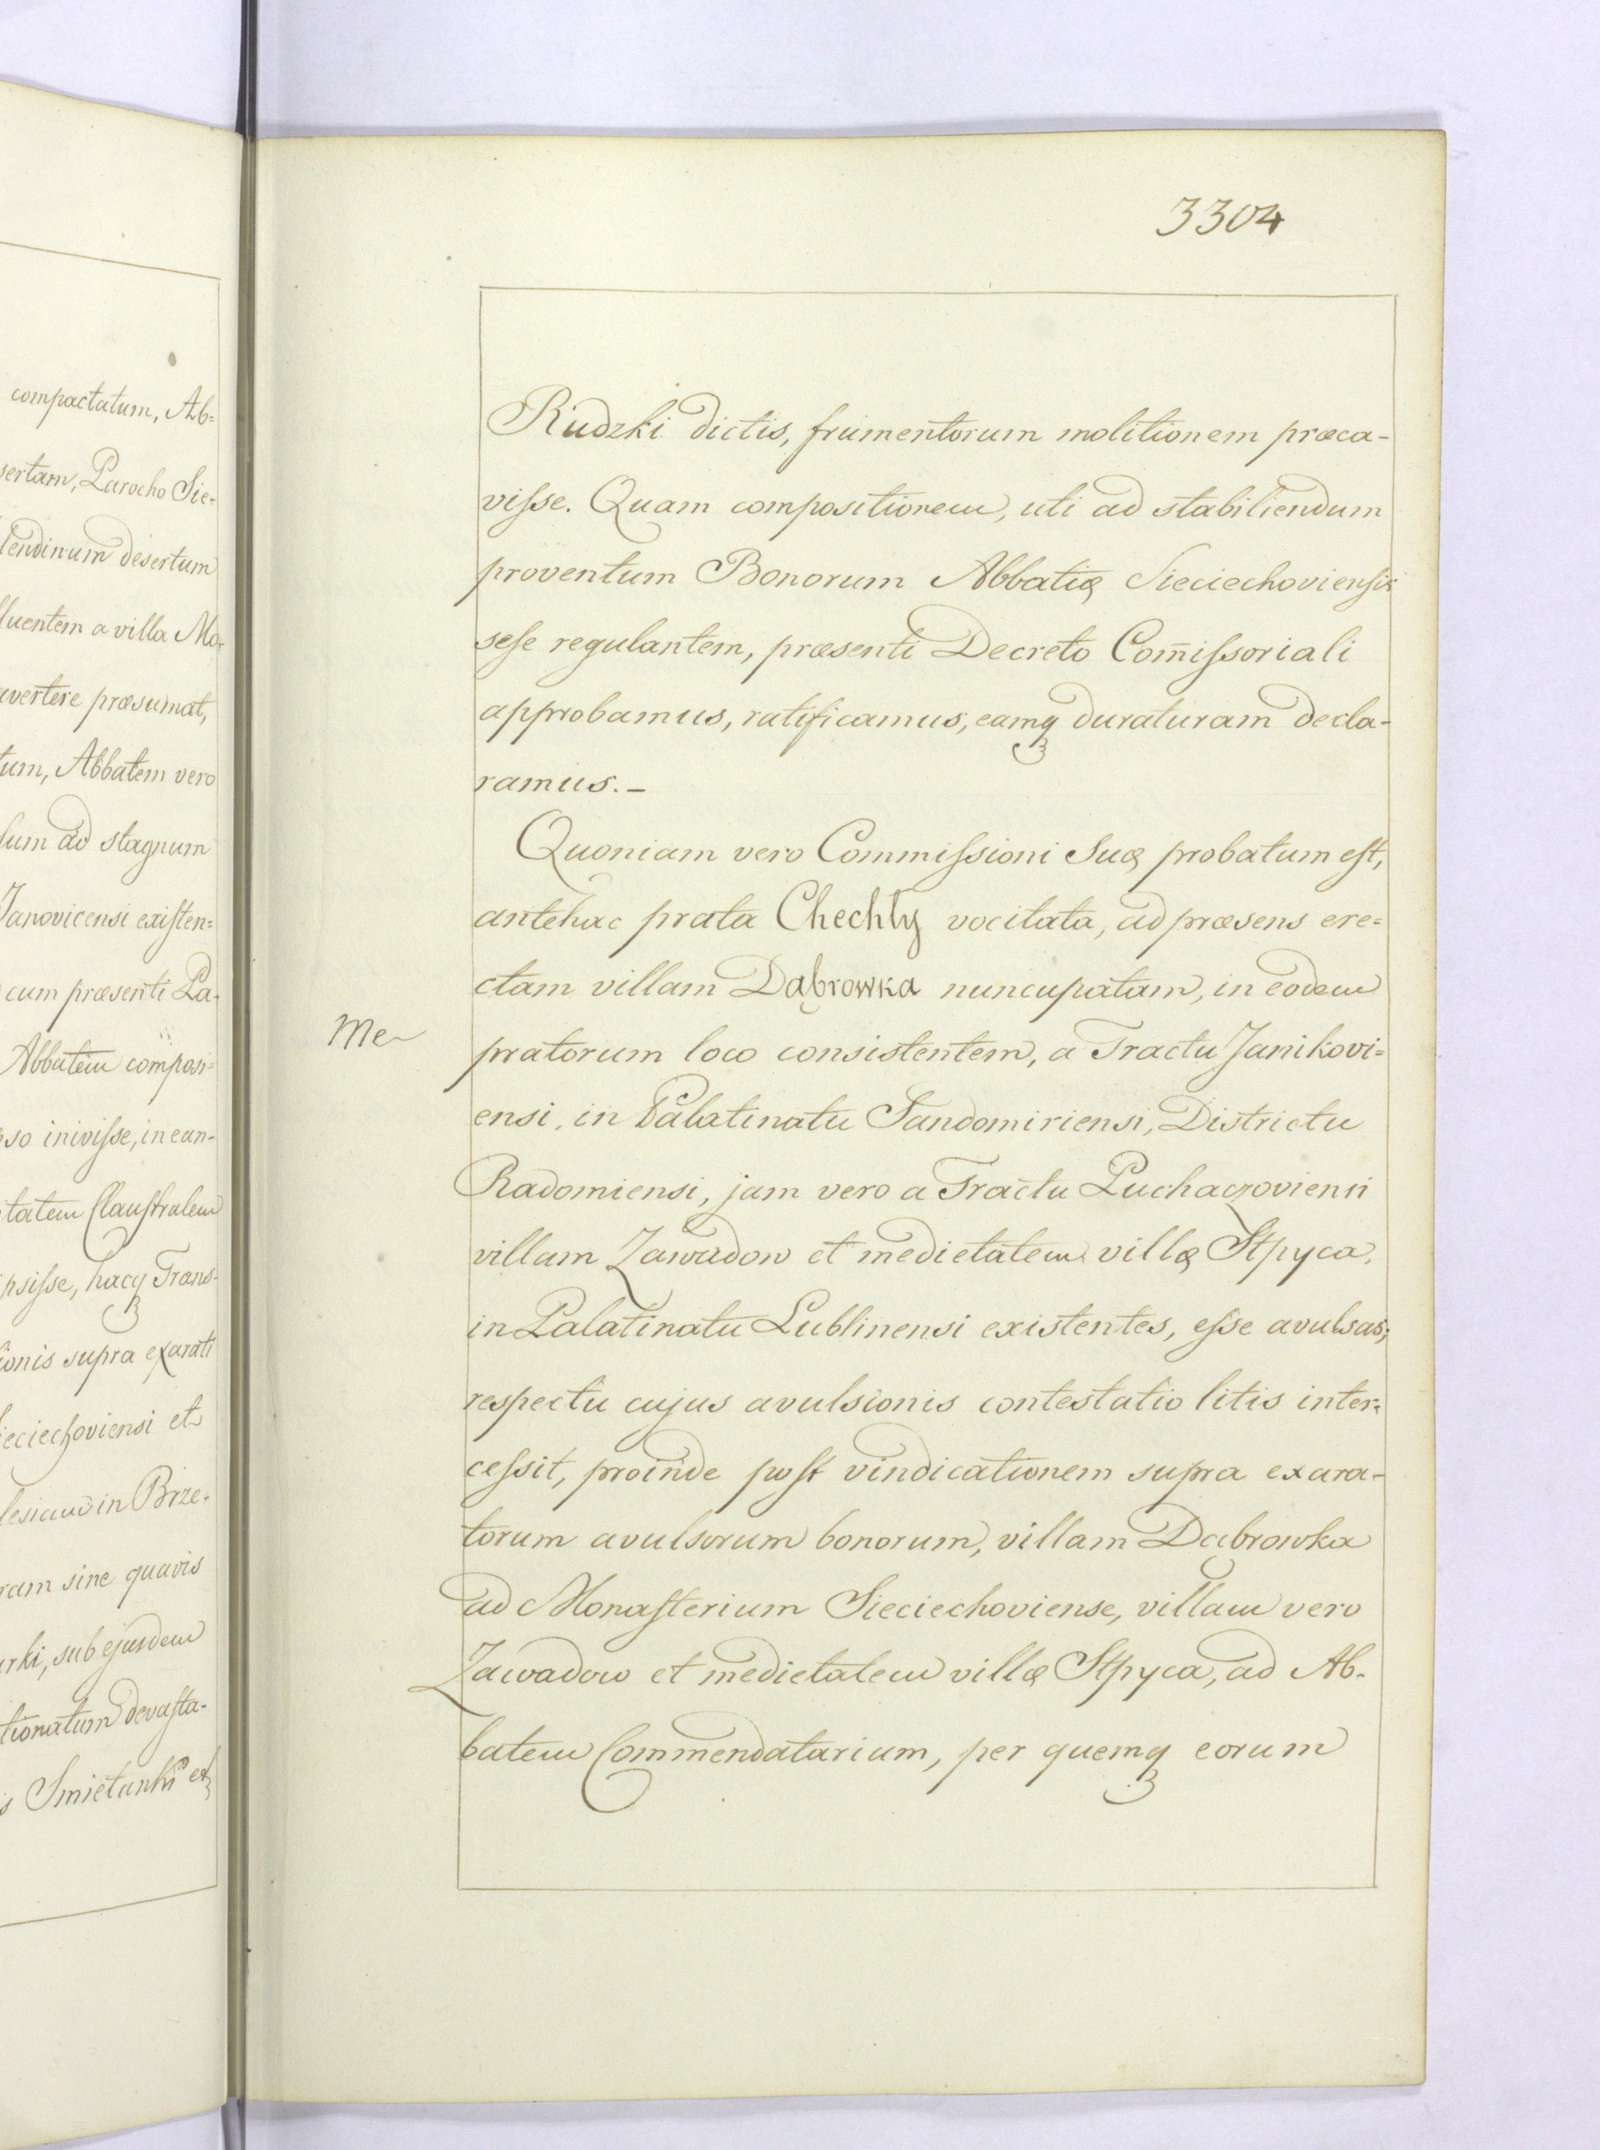 compactatum, Ab=
sertam, Parocho Sie-
lendinum desertum
fluentem a villa Mo-
avertere præsumat,
tum, Abbatem vero
sum ad stagnum
Janovicensi existen=
cum præsenti Pa-
Abbatem composi=
so inivisse, in ean-
tatem Claustralem
psisse, hacq3 Trans-
ionis supra exarati
ieciechoviensi et
lesiam in Brze-
ram sine quavis
rki, sub ejusdem
tionatum devasta-
s Smietanki et
3304
Rudzki dictis, frumentorum molitionem præca-
visse. Quam compositionem, uti ad stabiliendum
proventum Bonorum Abbatiæ Sieciechoviensis
sese regulantem, præsenti Decreto Com̄issoriali
approbamus, ratificamus, eamq3 duraturam decla-
ramus.-
Quoniam vero Commissioni Suæ probatum est,
antehac prata Chechły vocitata, ad præsens ere=
ctam villam Dąbrowka nuncupatam, in eodem
Me
pratorum loco consistentem, a Tractu Janikovi=
ensi, in Palatinatu Sandomiriensi, Districtu
Radomiensi, jam vero a Tractu Puchaczoviensi
villam Zawadow et medietatem villæ Stpyca,
in Palatinatu Lublinensi existentes, esse avulsas;
respectu cujus avulsionis contestatio litis inter=
cessit, proinde post vindicationem supra exara-
torum avulsorum bonorum, villam Dąbrowka
ad Monasterium Sieciechoviense, villam vero
Zawadow et medietatem villæ Stpyca, ad Ab-
batem Commendatarium, per quemq3 eorum